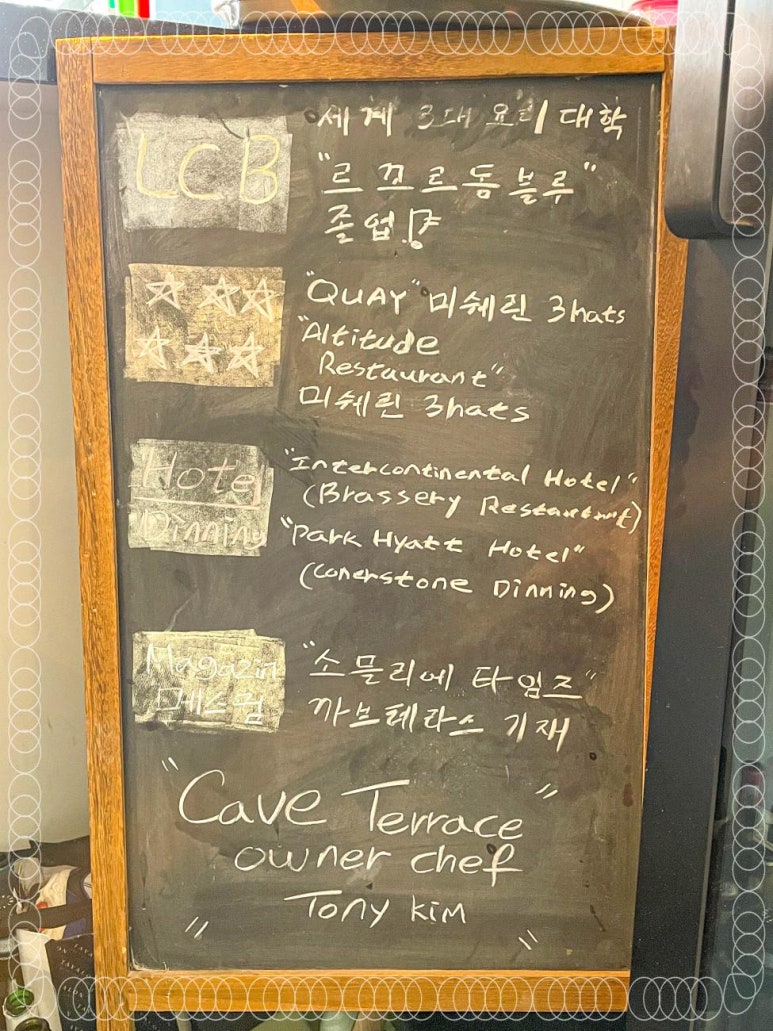 LCB
세계 3대 요리 대학
"르 꼬르동블루"
졸업!
"QUAY" 미쉐린 3hats
"Altitude
Restaurant"
미쉐린 3hats
Hotel
Dinning
"Intercontinental Hotel"
(Brassery Restaurant)
"Park Hyatt Hotel"
(conerstone Dinning)
Magazin
매스컴
"소믈리에 타임즈"
까브테라스 기재
"Cave Terrace"
owner chef
"Tony kim"